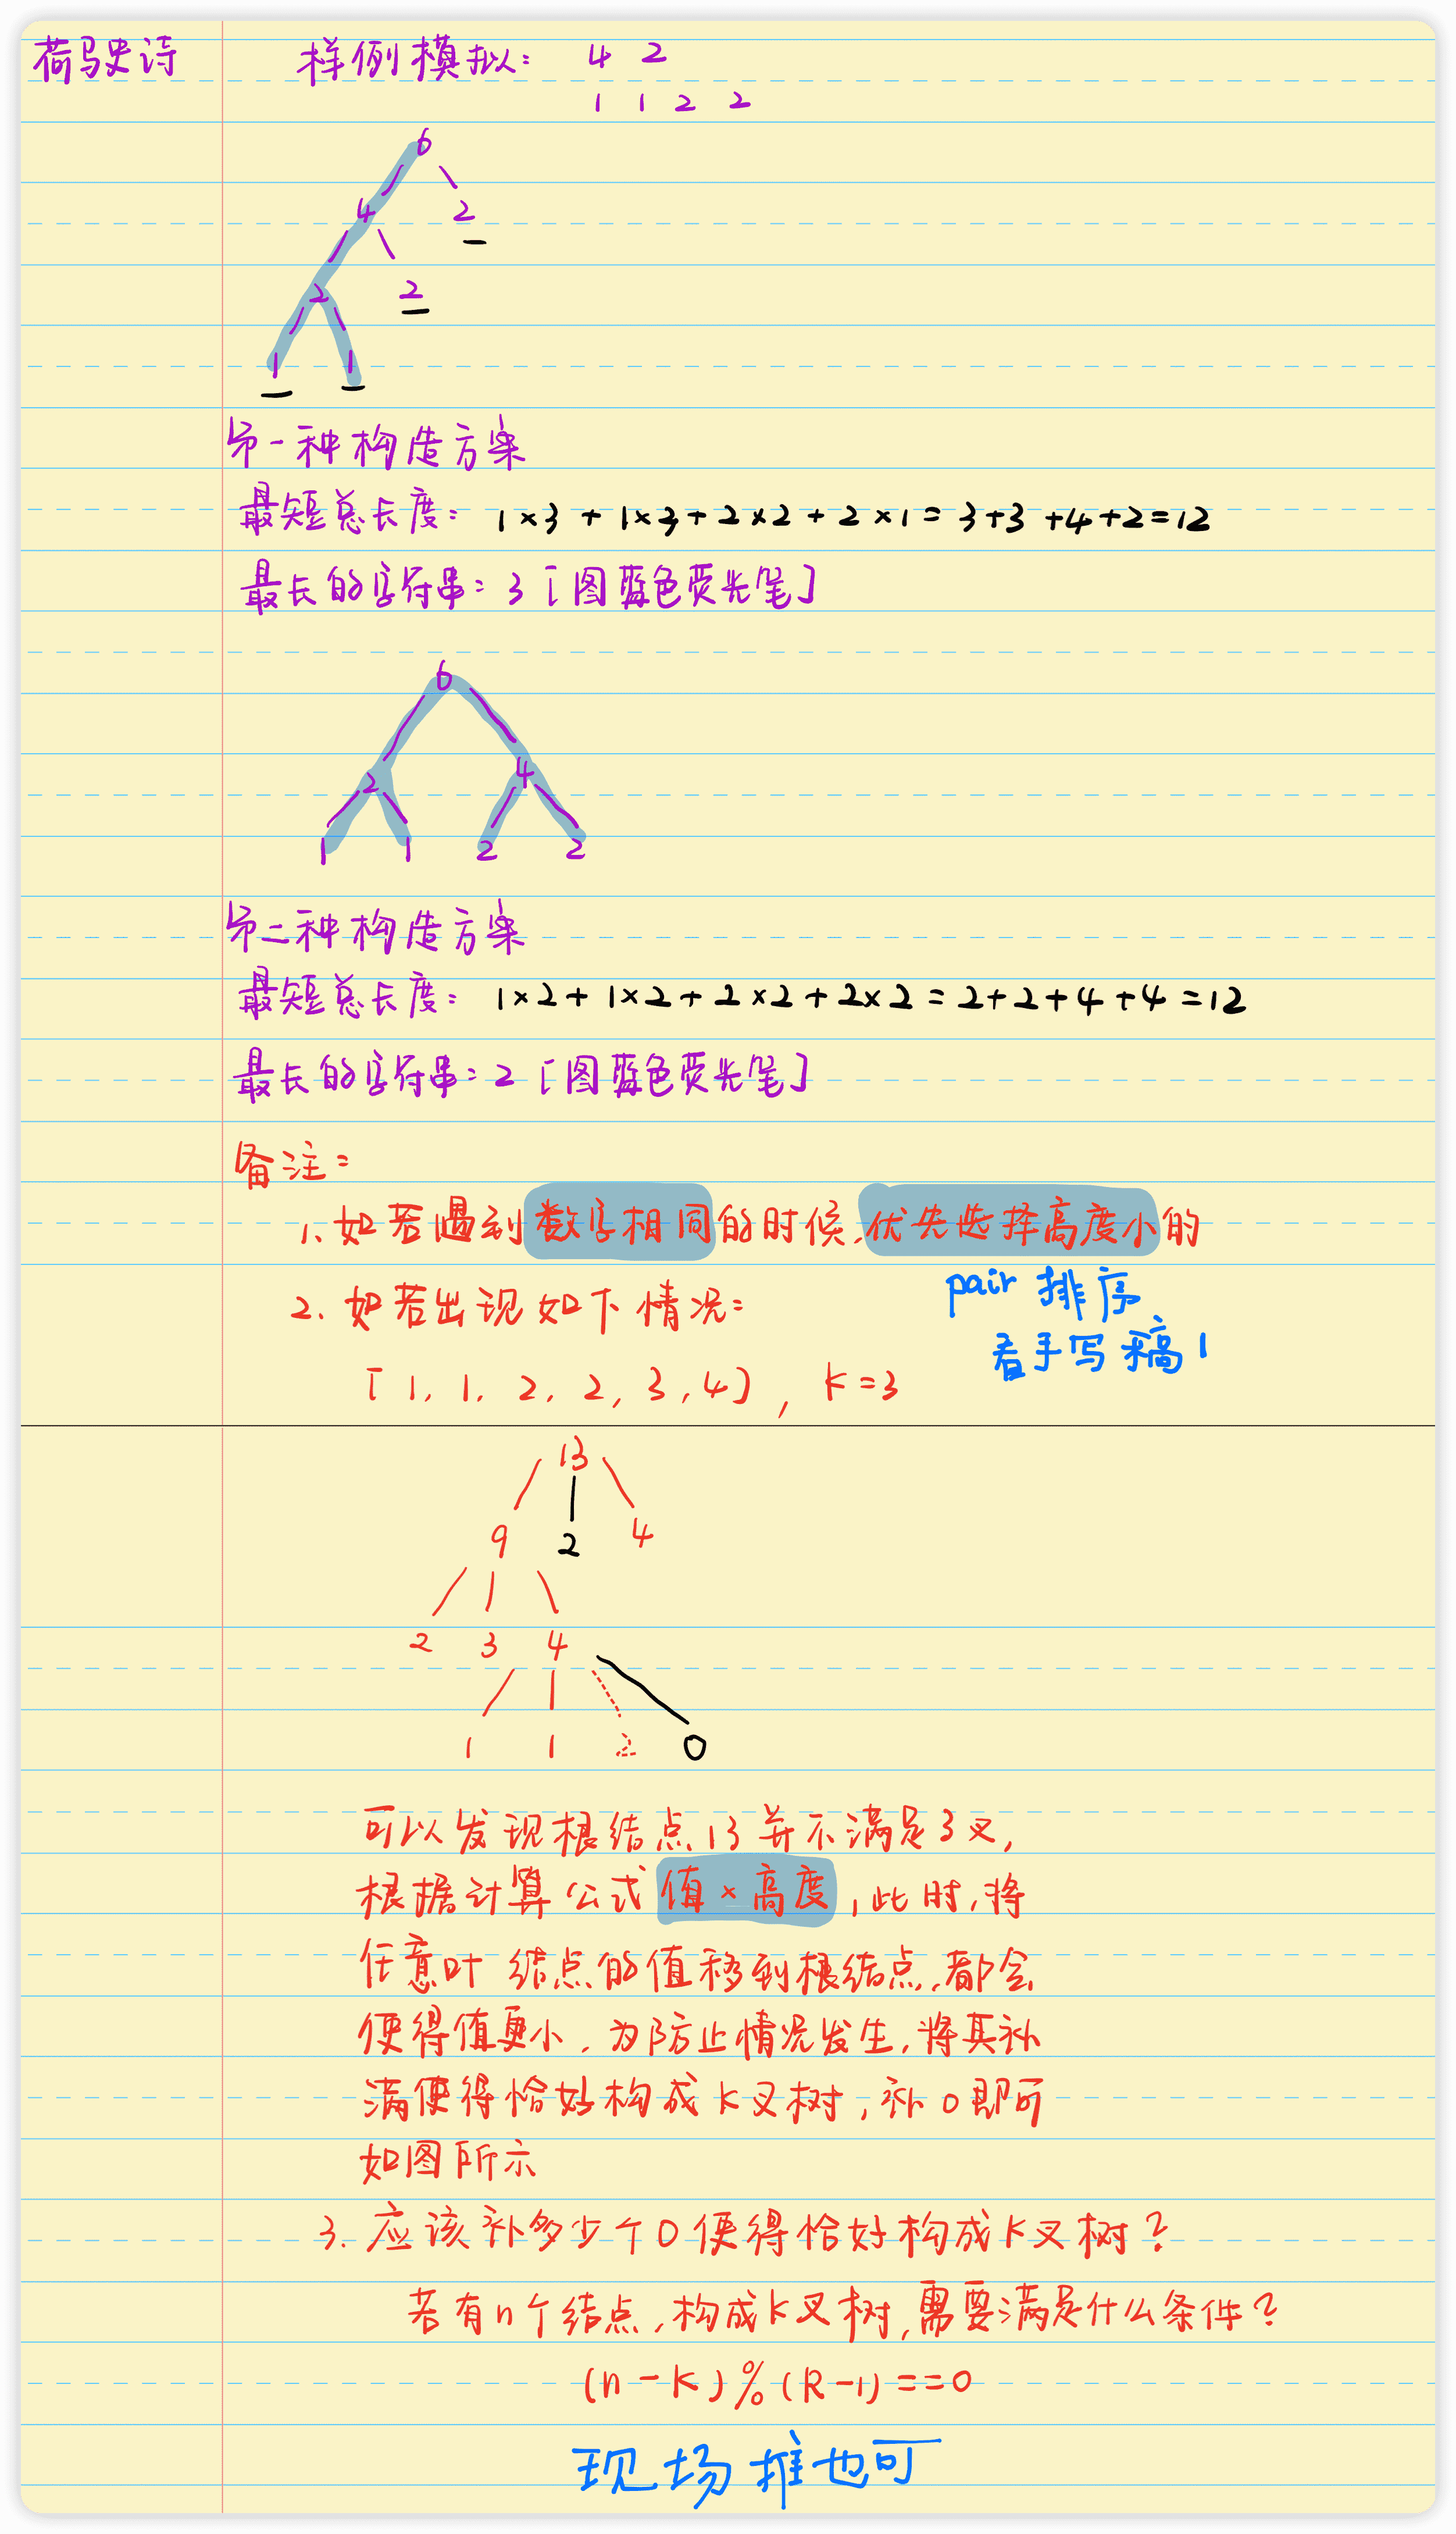 荷马史诗
样例模拟: 4 2
1 1 2 2
6
4 2
2 2
1 1
第一种构造方案
最短总长度: 1×3+1×3+2×2+2×1=3+3+4+2=12
最长的字符串: 3 [图蓝色荧光笔]
6
2 4
1 1 2 2
第二种构造方案
最短总长度: 1×2+1×2+2×2+2×2=2+2+4+4=12
最长的字符串: 2 [图蓝色荧光笔]
备注:
1、如若遇到数字相同的时候,优先选择高度小的
pair 排序
看手写稿1
2. 如若出现如下情况:
[1, 1, 2, 2, 3, 4], k=3
13
9 2 4
2 3 4
1 1 2 0
可以发现根结点13并不满足3叉,
根据计算公式值×高度,此时,将
任意叶结点的值移到根结点,都会
便得值更小,为防止情况发生,将其补
满便得恰好构成k叉树,补0即可
如图所示
3. 应该补多少个0便得恰好构成k叉树?
若有n个结点,构成k叉树,需要满足什么条件?
(n-k)%(k-1)==0
现场推也可